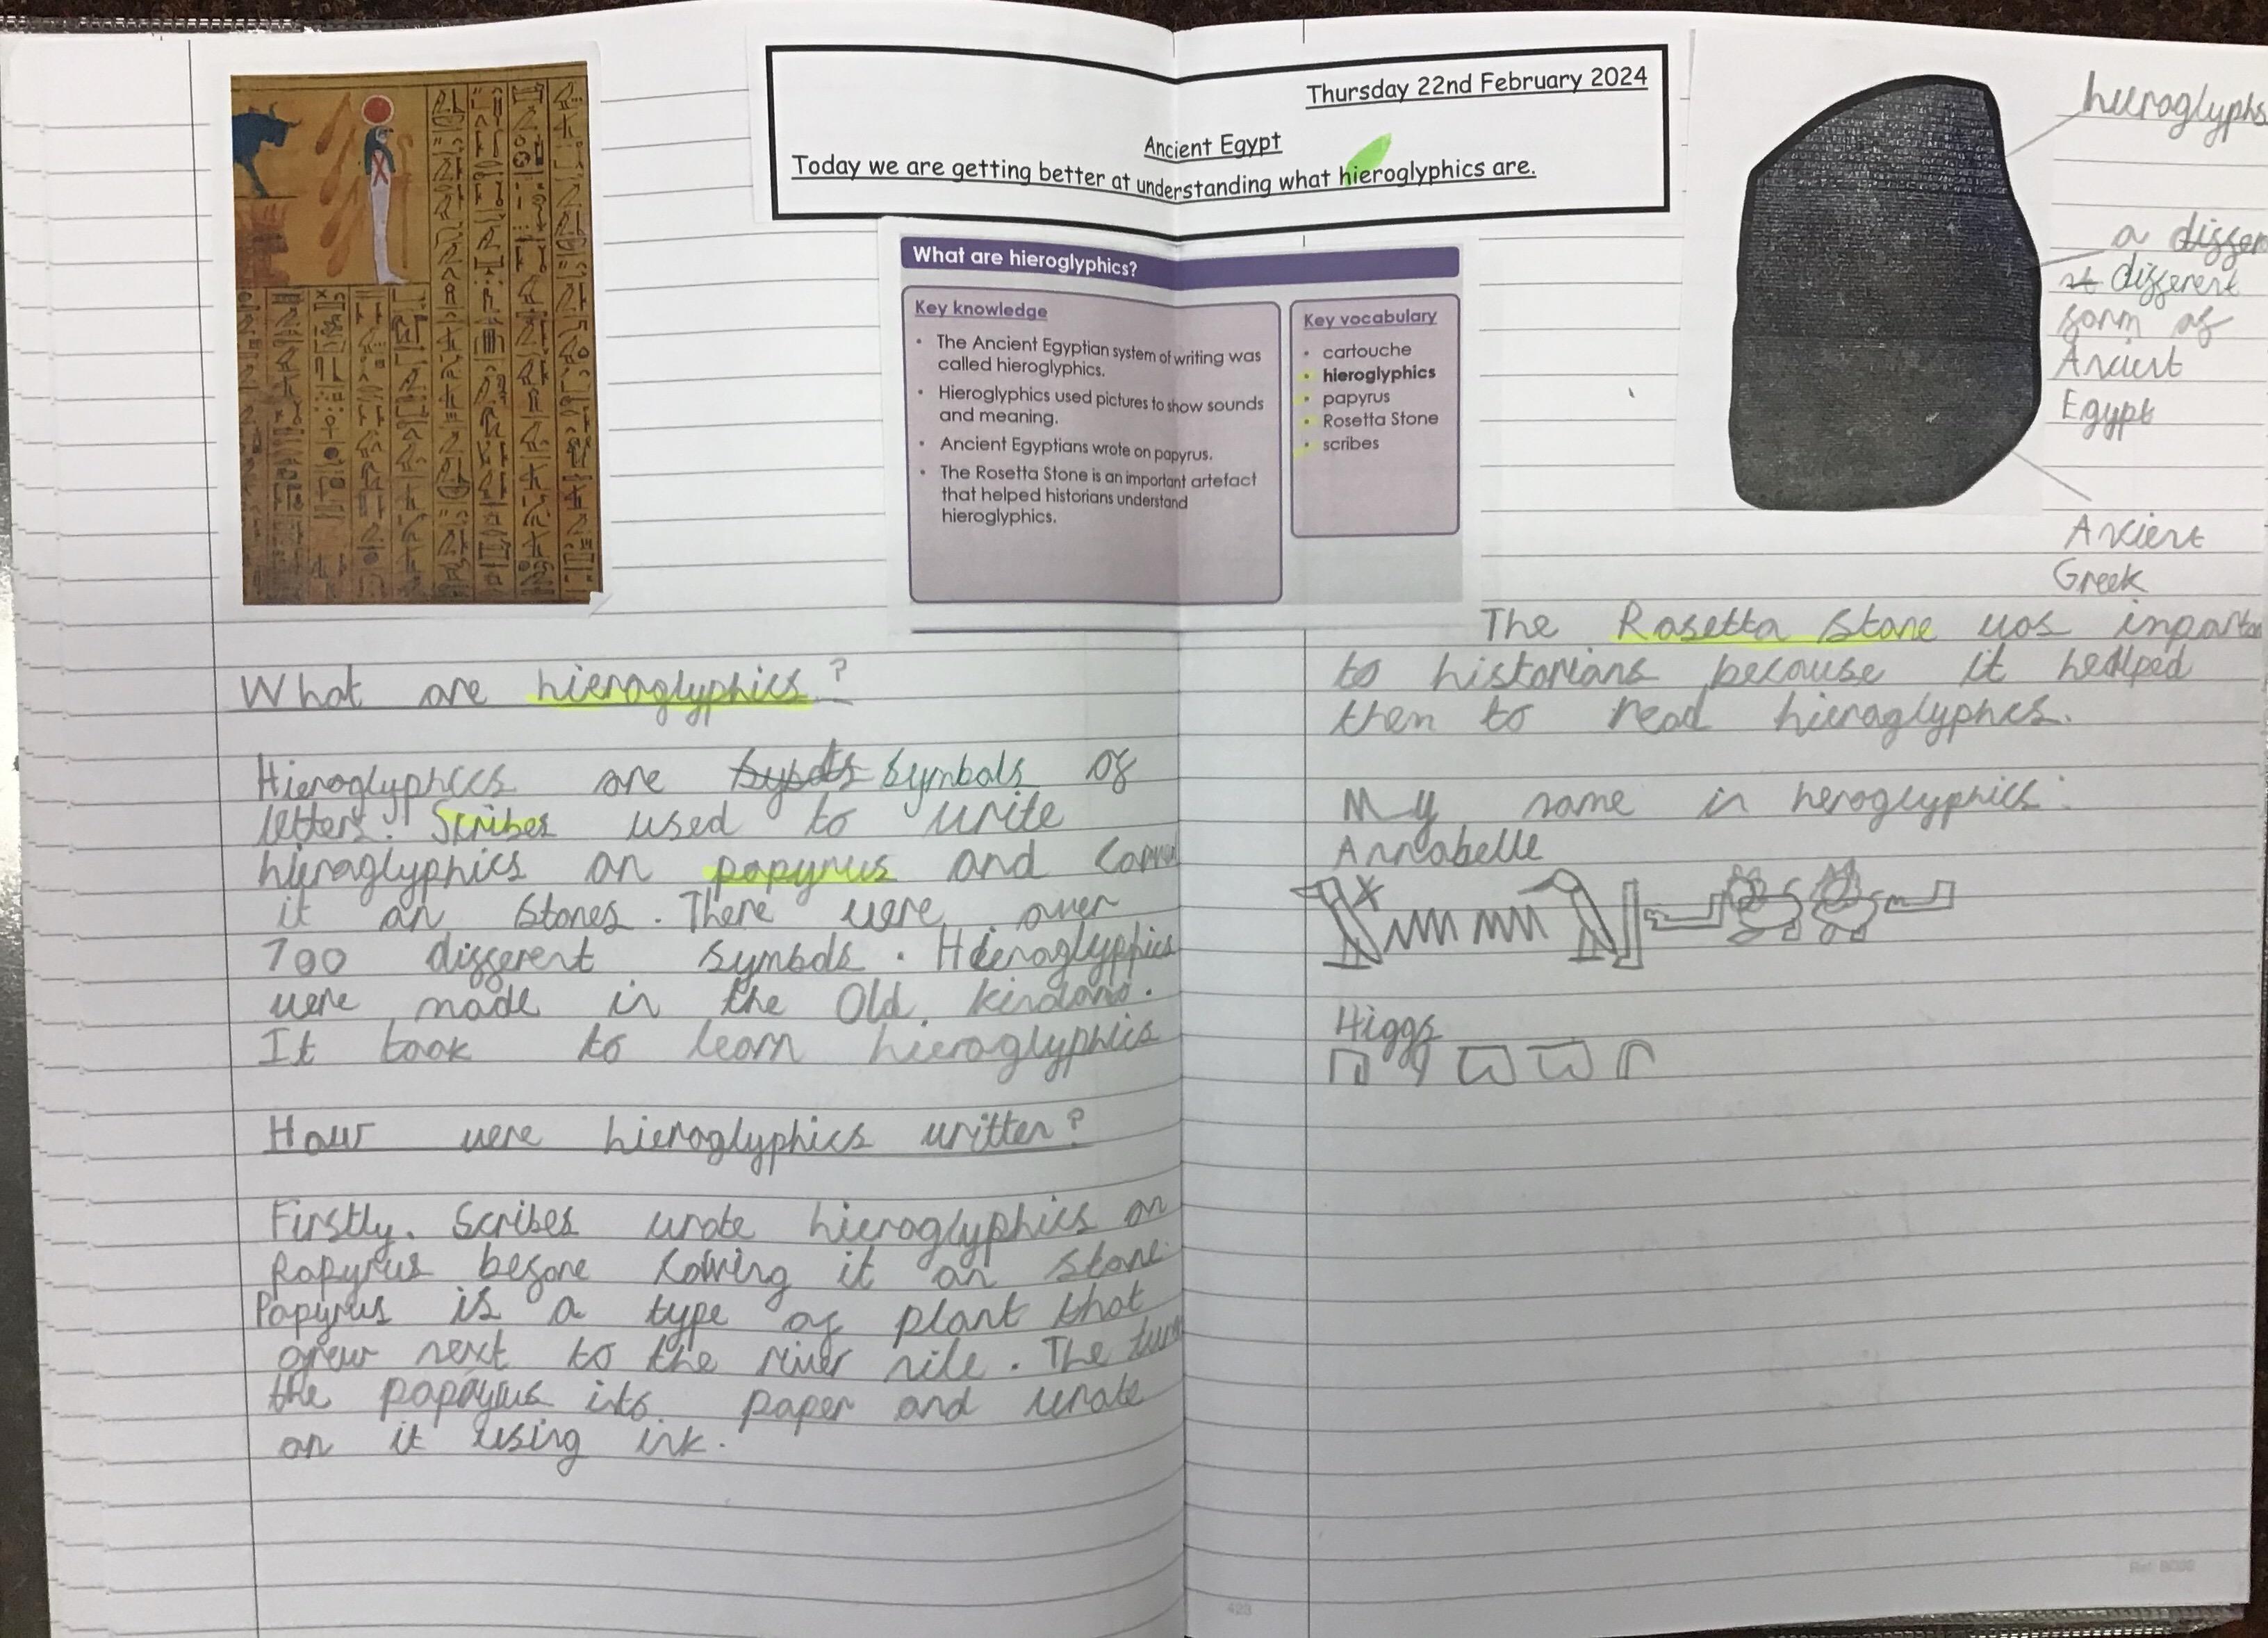 Thursday 22nd February 2024
Ancient Egypt
Today we are getting better at understanding what hieroglyphics are.
What are hieroglyphics?
Key knowledge
• The Ancient Egyptian system of writing was
called hieroglyphics.
• Hieroglyphics used pictures to show sounds
and meaning.
• Ancient Egyptians wrote on papyrus.
• The Rosetta Stone is an important artefact
that helped historians understand
hieroglyphics.
Key vocabulary
• cartouche
• hieroglyphics
• papyrus
• Rosetta Stone
• scribes
What are hieroglyphics?
Hieroglyphics are symbols of
letters. Scribes used to write
hieroglyphics on papyrus and
it on stones. There were over
700 different symbols. Hieroglyphics
were made in the Old kindom.
It took to learn hieroglyphics
How were hieroglyphics written?
Firstly. Scribes wrote hieroglyphics on
Papyrus before it on stone.
Papyrus is a type of plant that
grew next to the river nile. The
the papayrus into paper and wrote
on it using ink.
hieroglyphs
a differ
different
form of
Ancient
Egypt
Ancient
Greek
The Rosetta Stone was
to historians because it hellped
them to read hieroglyphcs.
My name in heroglyphics:
Annabelle
Higgs
423